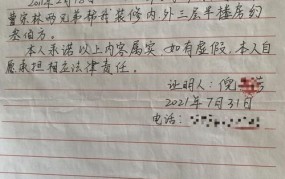 曹宗林两兄弟栋或装修内、外三层半楼房约
叁佰方。
本人承诺以上内容属实,如有虚假,本人自
愿承担相应法律责任。
证明人:倪
2021年7月31日
电话: